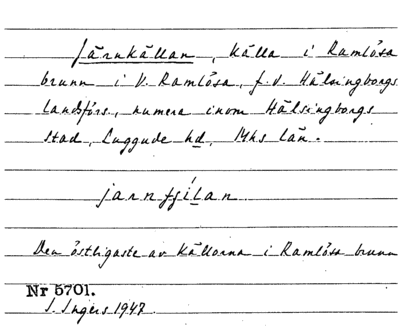 Järnkällan, källa i Ramlösa
brunn i V. Ramlösa, f.d. Hälsingborgs
landsförs., numera inom Hälsingborgs
stad, Luggude hd, Mhs län.
Den östligaste av källorna i Ramlösa brunn
Nr 5701.
I. Ingers 1947.